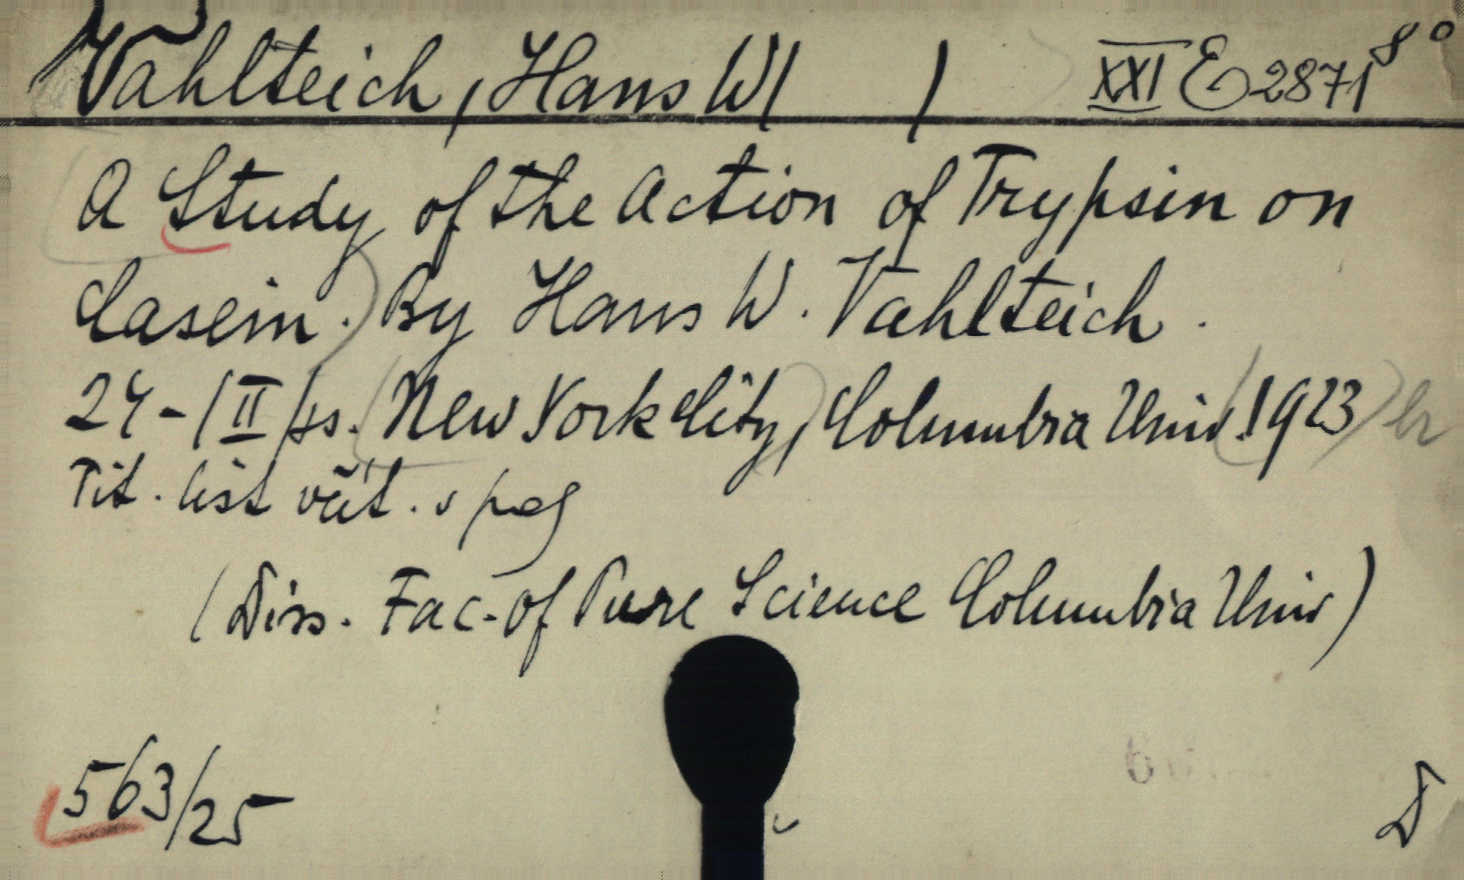 Vahlteich, Hans W/ / XXI E 2871 8°
A Study of the Action of Trypsin on
Casein. By Hans W. Vahlteich.
24-/II ss. New York City, Columbia Univ. 1923
Tit. list
(Diss. Fac. of Pure Science Columbia Univ)
563/25
D